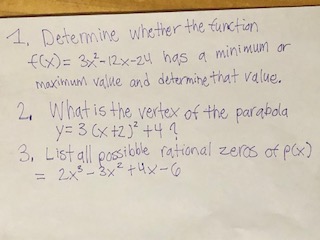 1. Determine whether the function
f(x) = 3x²-12x-24 has a minimum or
maximum value and determine that value.
2. What is the vertex of the parabola
y = 3(x+2)² + 4 ?
3. List all possibble rational zeros of p(x)
= 2x³ - 3x² + 4x - 6